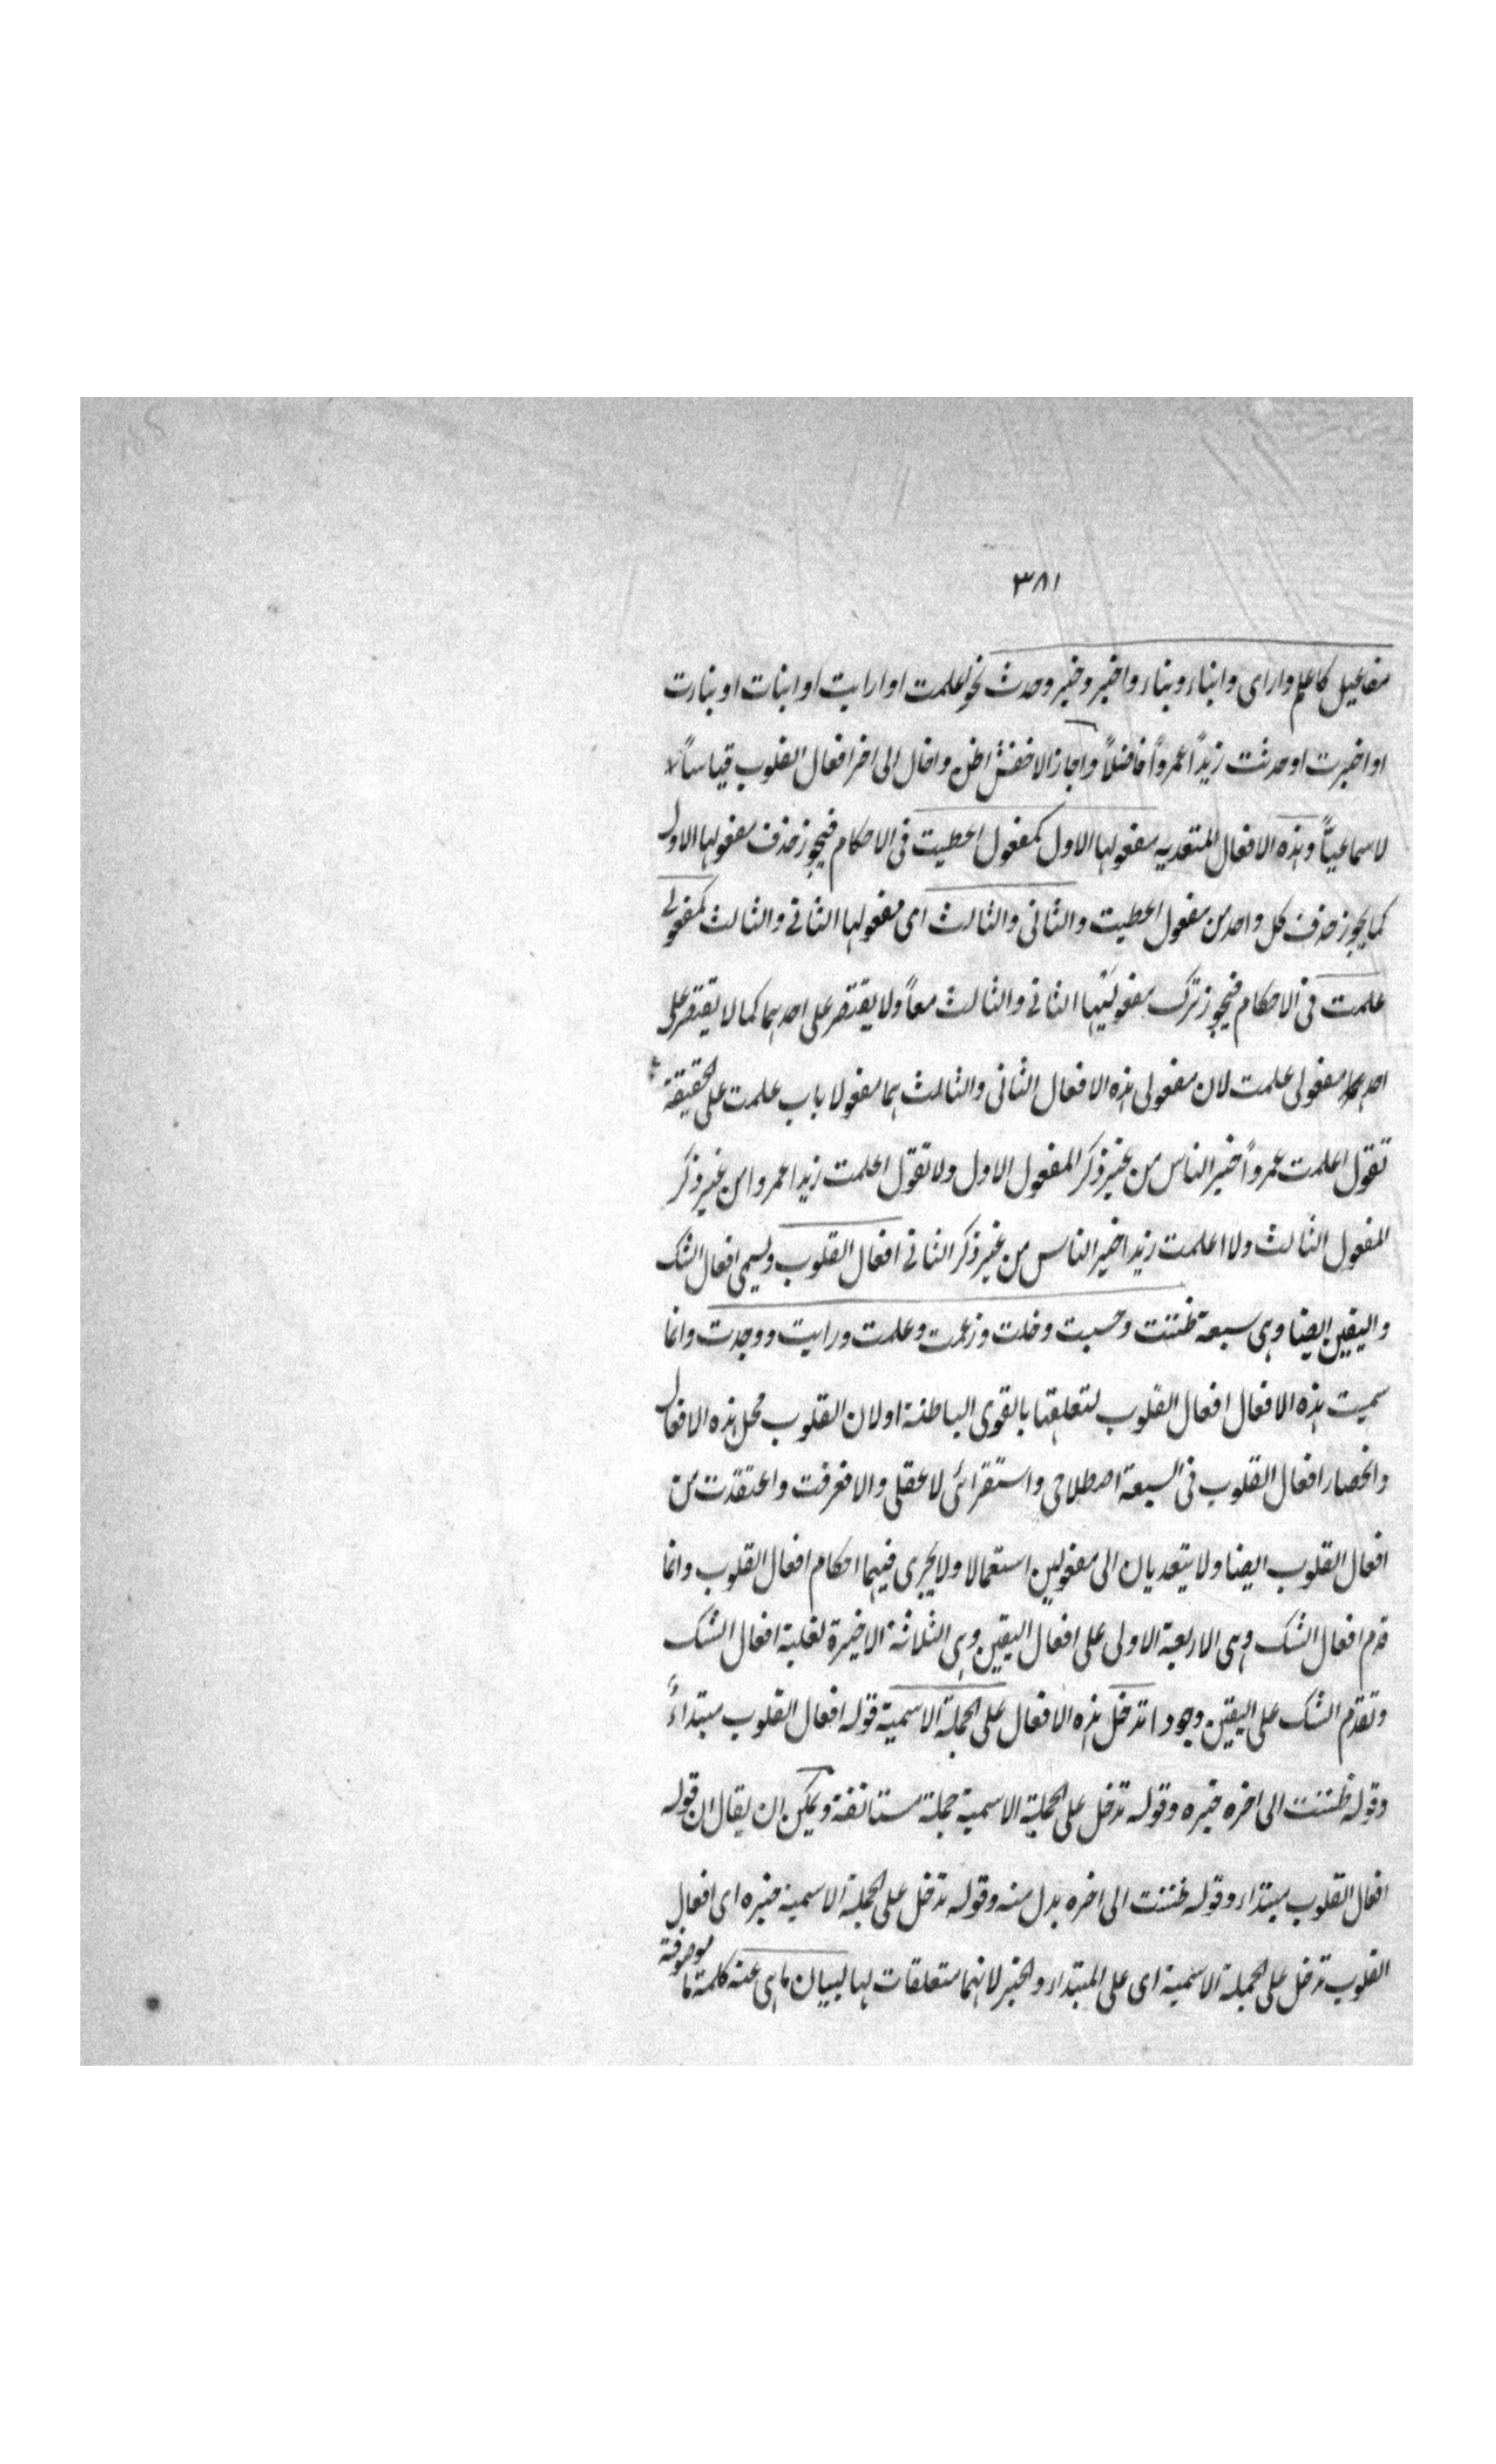 ٣٨١
مفاعيل كاعلم وارای وانباء ونباء واخبر وخبر وحدث نحو اعلمت او ارايت او انبات او نبارت
او اخبرت او حدثت زيدًا عمروًا فاضلاً واجاز الاخفش اظن واخال الی اخر افعال القلوب قياساً لا
لا سماعيًّا وهذه الافعال المتعديه مفعولها الاول كمفعول اعطيت فی الاحكام فيجوز حذف مفعولها الاول
كما يجوز حذف كل واحد من مفعول اعطيت والثانی والثالث ای مفعولها الثانی والثالث كمفعولی
علمت فی الاحكام فيجوز ترك مفعوليها الثانی والثالث معاً ولا يقتصر علی احدهما كما لا يقتصر علی
احدهما مفعولی علمت لان مفعولی هذه الافعال الثانی والثالث هما مفعولا باب علمت علی الحقيقة
تقول اعلمت عمروًا خير الناس من غير ذكر المفعول الاول ولا تقول اعلمت زيدا عمروا من غير ذكر
المفعول الثالث ولا اعلمت زيدا خير الناس من غير ذكر الثانی افعال القلوب ويسمی افعال الشك
واليقين ايضا وهی سبعة ظننت وحسبت وخلت وزعمت وعلمت ورايت ووجدت وانما
سميت هذه الافعال افعال القلوب لتعلقها بالقوی الباطنة او لان القلوب محل هذه الافعال
وانحصار افعال القلوب فی السبعة اصطلاحی واستقرائی لا عقلی والا فعرفت واعتقدت من
افعال القلوب ايضا ولا يتعديان الی مفعولين استعمالا ولا يجری فيهما احكام افعال القلوب وانما
قدم افعال الشك وهی الاربعة الاولی علی افعال اليقين وهی الثلاثة الاخيرة لغلبة افعال الشك
وتقدم الشك علی اليقين وجودا تدخل هذه الافعال علی الجملة الاسمية قوله افعال القلوب مبتداءً
وقوله ظننت الی اخره خبره وقوله تدخل علی الجملة الاسمية جملة مستانفة ويمكن ان يقال ان قوله
افعال القلوب مبتداء وقوله ظننت الی اخره بدل منه وقوله تدخل علی الجملة الاسمية خبره ای افعال
القلوب تدخل علی الجملة الاسمية ای علی المبتداء والخبر لانهما متعلقات لها لبيان ما هی عنه كلمة ما موصوفة